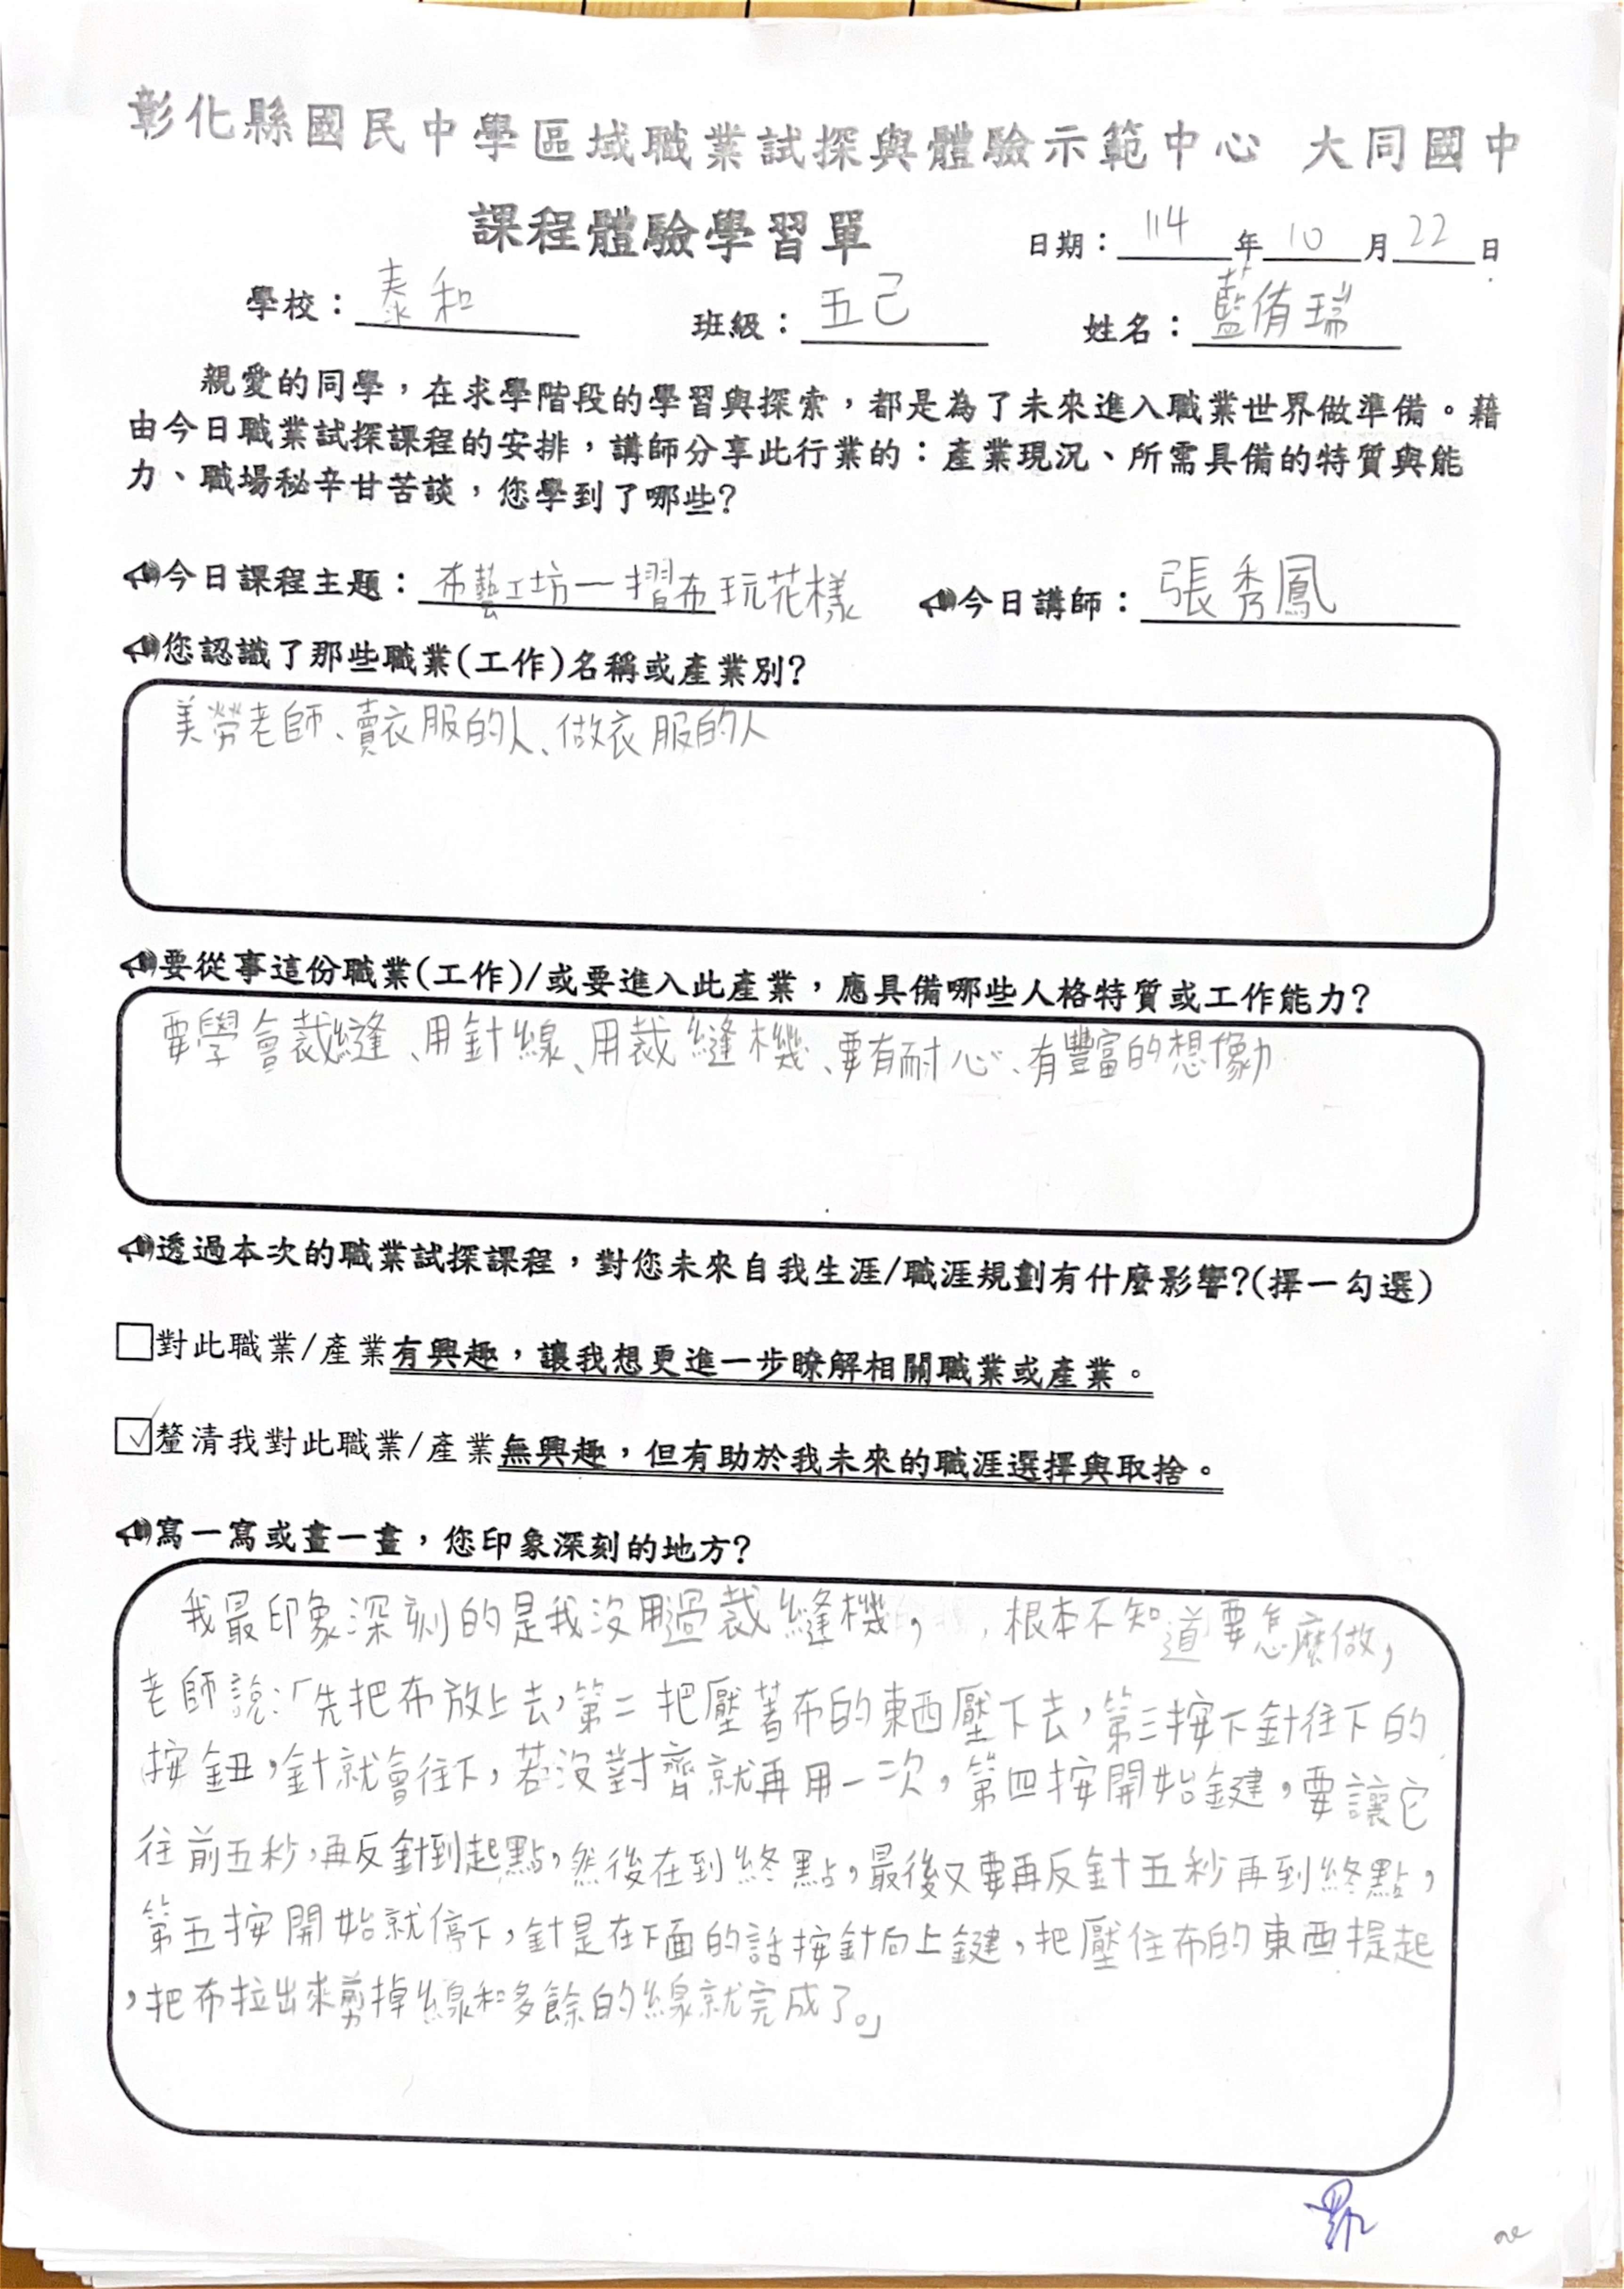 彰化縣國民中學區域職業試探與體驗示範中心 大同國中
課程體驗學習單 日期：114年10月22日
學校：泰和 班級：五己 姓名：藍侑瑞
親愛的同學，在求學階段的學習與探索，都是為了未來進入職業世界做準備。藉
由今日職業試探課程的安排，講師分享此行業的：產業現況、所需具備的特質與能
力、職場秘辛甘苦談，您學到了哪些?
今日課程主題：布藝工坊—摺布玩花樣 今日講師：張秀鳳
您認識了那些職業(工作)名稱或產業別?
美勞老師、賣衣服的人、做衣服的人
要從事這份職業(工作)/或要進入此產業，應具備哪些人格特質或工作能力?
要學會裁縫、用針線、用裁縫機、要有耐心、有豐富的想像力
透過本次的職業試探課程，對您未來自我生涯/職涯規劃有什麼影響?(擇一勾選)
□對此職業/產業有興趣，讓我想更進一步瞭解相關職業或產業。
☑釐清我對此職業/產業無興趣，但有助於我未來的職涯選擇與取捨。
寫一寫或畫一畫，您印象深刻的地方?
我最印象深刻的是我沒用過裁縫機，根本不知道要怎麼做，
老師說：「先把布放上去，第二把壓著布的東西壓下去，第三按下針往下的
按鈕，針就會往下，若沒對齊就再用一次，第四按開始鍵，要讓它
往前五秒，再反針到起點，然後在到終點，最後又要再反針五秒再到終點，
第五按開始就停下，針是在下面的話按針向上鍵，把壓住布的東西提起
，把布拉出來剪掉線和多餘的線就完成了。」